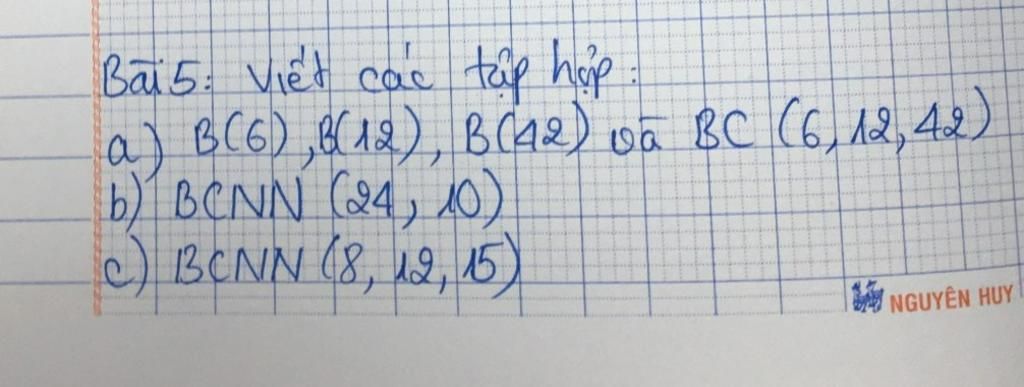 Bài 5: Viết các tập hợp:
a) B(6), B(12), B(42) và BC (6, 12, 42)
b) BCNN (24, 10)
c) BCNN (8, 12, 15)
NGUYÊN HUY